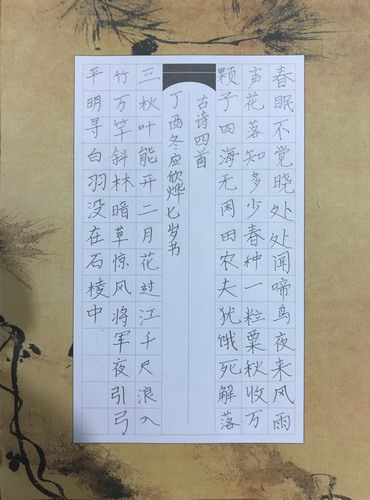 春眠不觉晓处处闻啼鸟夜来风雨
声花落知多少春种一粒粟秋收万
颗子四海无闲田农夫犹饿死解落
古诗四首
丁酉冬应欣烨七岁书
三秋叶能开二月花过江千尺浪入
竹万竿斜林暗草惊风将军夜引弓
平明寻白羽没在石棱中